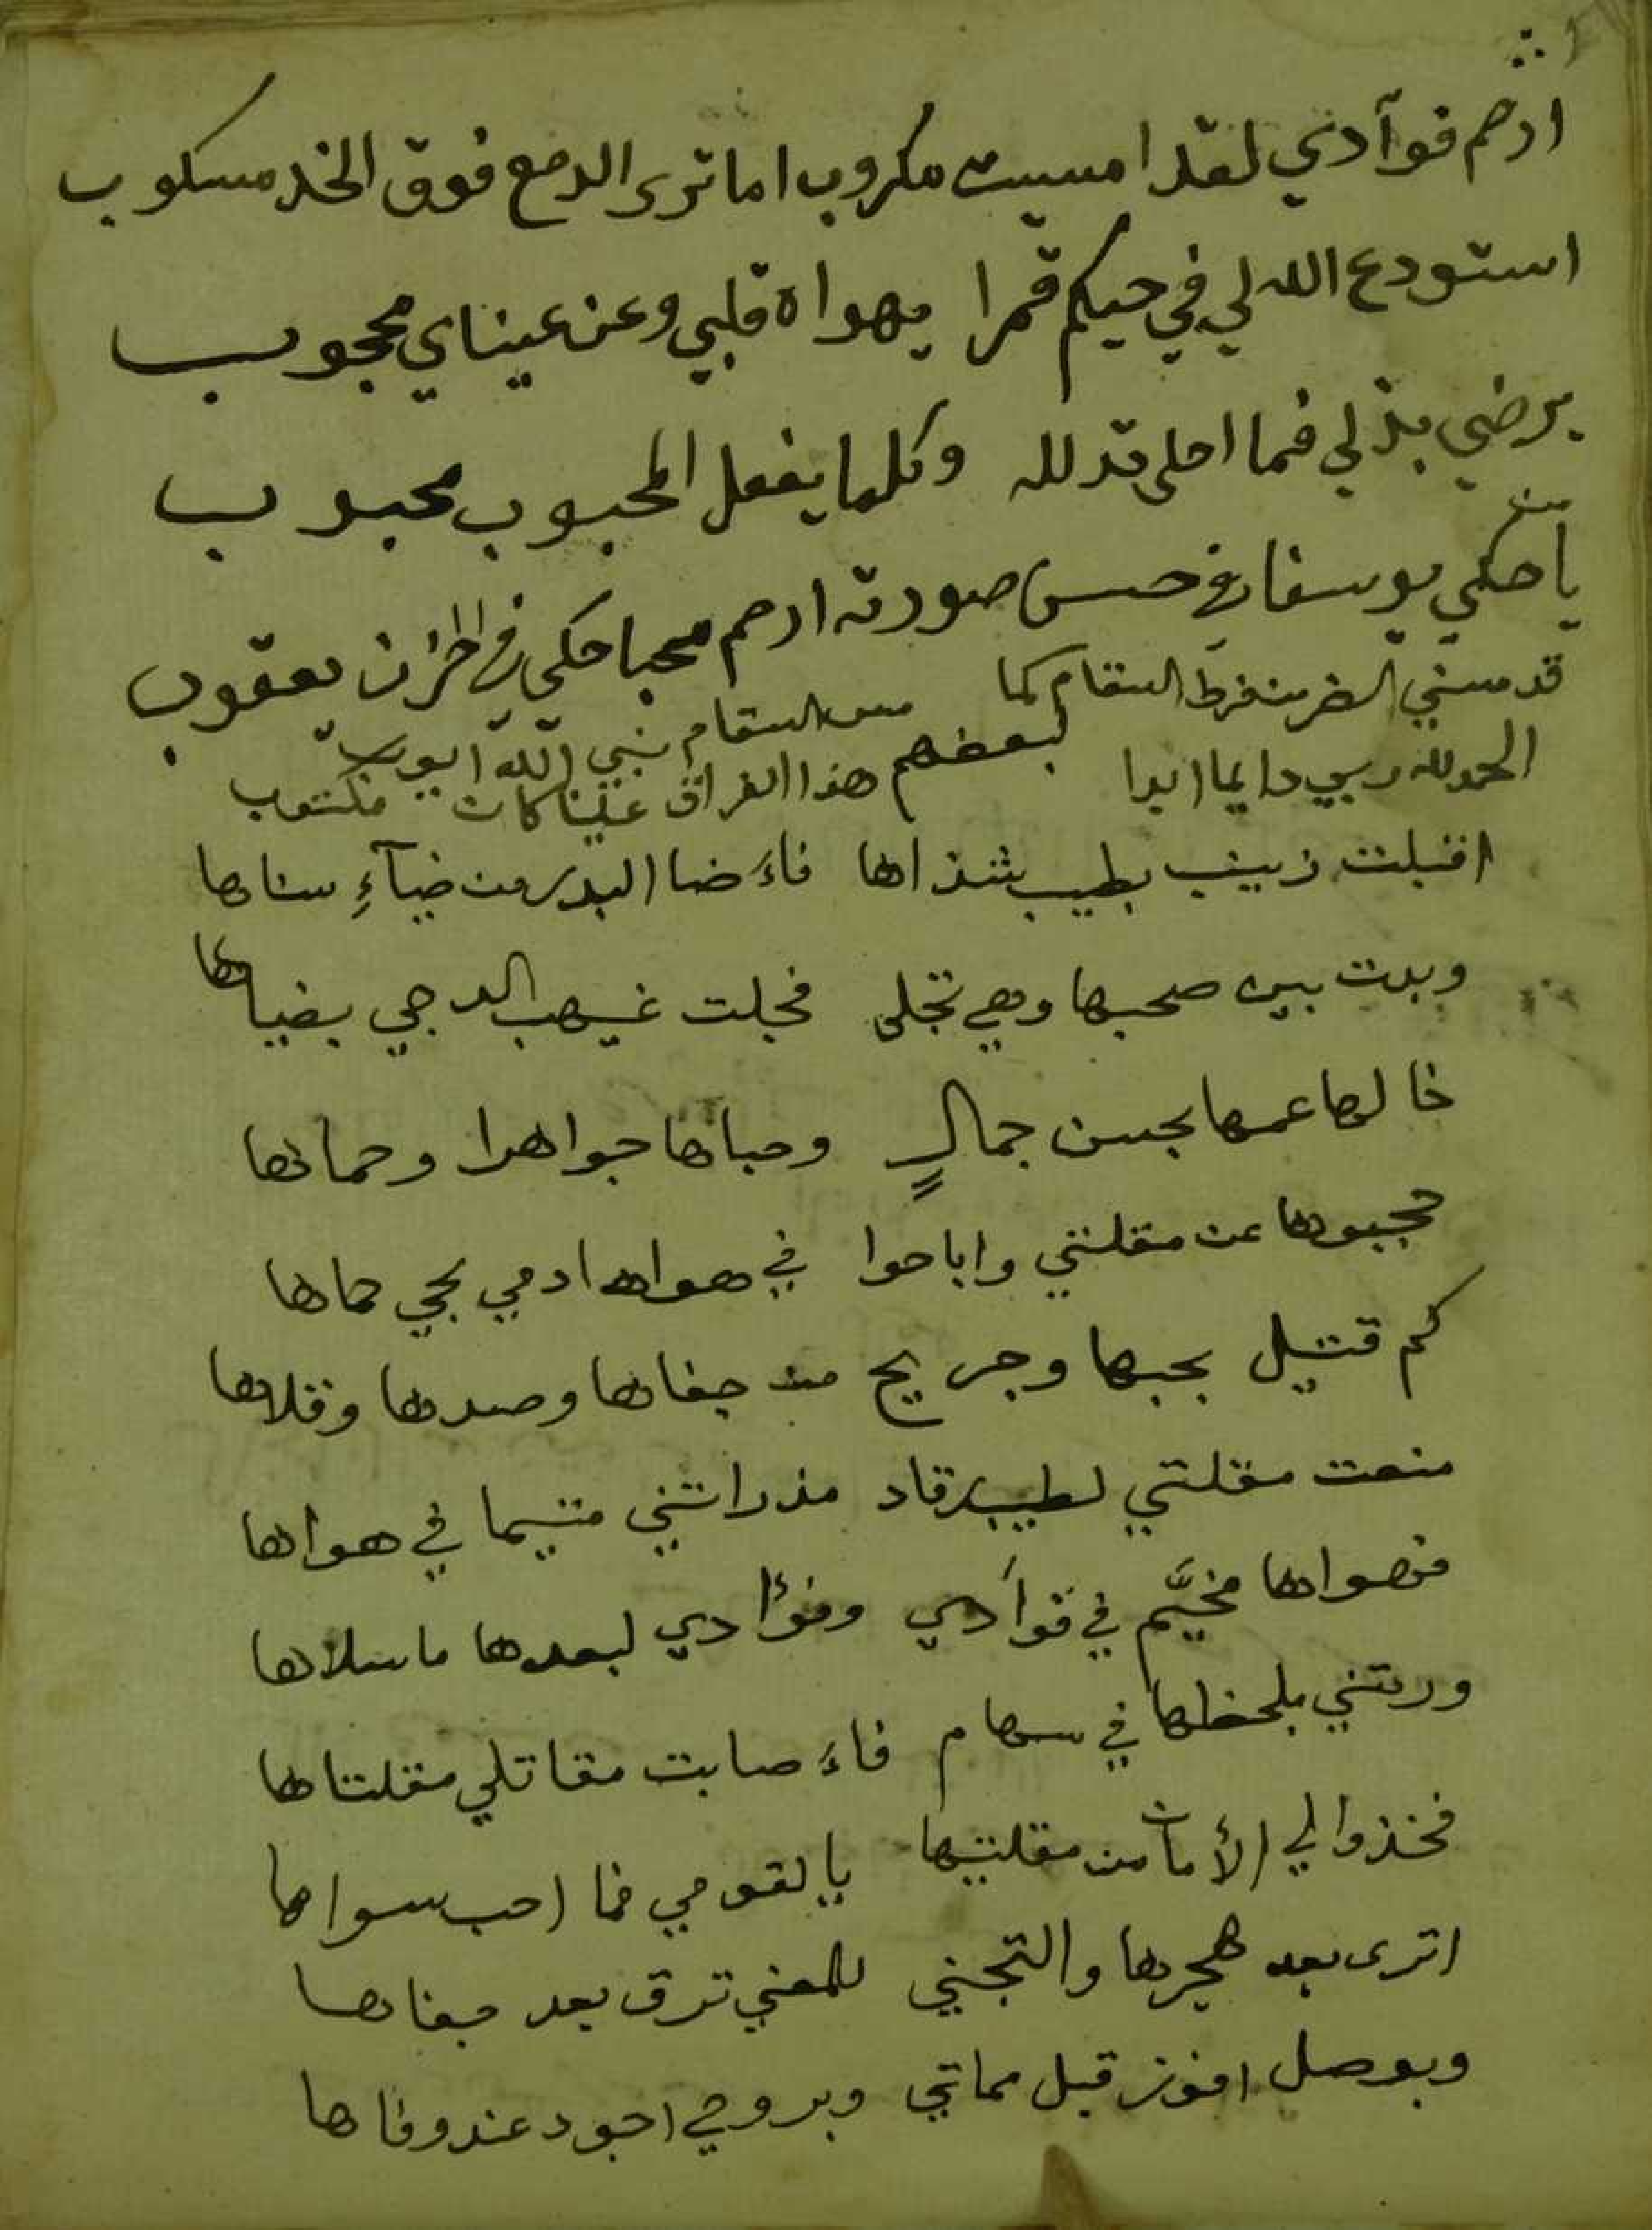 ارحم فوآدي لقد امسيت مكروب اما ترى الدمع فوق الخد مسكوب
استودع الله لي في حيكم قمرا يهواه قلبي وعن عيناي محجوب
يرضي بذلي فما احلى تدلله وكلما يفعل المحبوب محبوب
يا من حكي يوسفا في حسن صورته ارحم محبا حكي في الحزن يعقوب
قد مسني الضر من فرط السقام كما مس السقام نبي الله ايوب
الحمد لله ربي دايما ابدا هذا الفراق علينا كان مكتوب
لبعضهم
اقبلت زينب بطيب شذاها فاءَضا البدر من ضيآءِ سناها
وبدت بين صحبها وهي تجلى فجلت غيهب الدجي بضياها
خالها عمها بحسن جمالٍ وحباها جواهرا وحماها
حجبوها عن مقلتي واباحوا في هواها دمي بحي حماها
كم قتيل بحبها وجريح من جفاها وصدها وقلاها
منعت مقلتي لطيب رقاد مذ راتني متيما في هواها
فهواها مخيَّم في فوآَدي وفؤادي لبعدها ما سلاها
ورمتني بلحظها في سهام فاءَصابت مقاتلي مقلتاها
فخذوا لي الأمان من مقلتيها يا لقومي فما احب سواها
اترى بعد هجرها والتجني للمعني ترق بعد جفاها
وبوصل افوز قبل مماتي وبروحي اجود عند وفاها